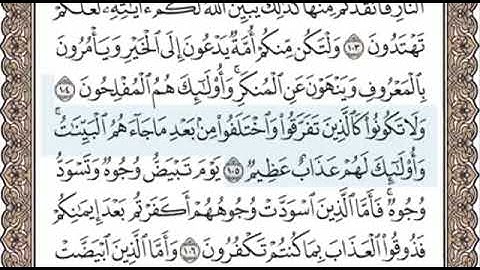 النَّارِ فَأَنقَذَكُم مِّنْهَا كَذَٰلِكَ يُبَيِّنُ اللَّهُ لَكُمْ ءَايَٰتِهِۦ لَعَلَّكُمْ
تَهْتَدُونَ ١٠٣ وَلْتَكُن مِّنكُمْ أُمَّةٌ يَدْعُونَ إِلَى ٱلْخَيْرِ وَيَأْمُرُونَ
بِٱلْمَعْرُوفِ وَيَنْهَوْنَ عَنِ ٱلْمُنكَرِ ۚ وَأُو۟لَٰٓئِكَ هُمُ ٱلْمُفْلِحُونَ ١٠٤
وَلَا تَكُونُوا۟ كَٱلَّذِينَ تَفَرَّقُوا۟ وَٱخْتَلَفُوا۟ مِنۢ بَعْدِ مَا جَآءَهُمُ ٱلْبَيِّنَٰتُ ۚ
وَأُو۟لَٰٓئِكَ لَهُمْ عَذَابٌ عَظِيمٌ ١٠٥ يَوْمَ تَبْيَضُّ وُجُوهٌ وَتَسْوَدُّ
وُجُوهٌ ۚ فَأَمَّا ٱلَّذِينَ ٱسْوَدَّتْ وُجُوهُهُمْ أَكَفَرْتُم بَعْدَ إِيمَٰنِكُمْ
فَذُوقُوا۟ ٱلْعَذَابَ بِمَا كُنتُمْ تَكْفُرُونَ ١٠٦ وَأَمَّا ٱلَّذِينَ ٱبْيَضَّتْ